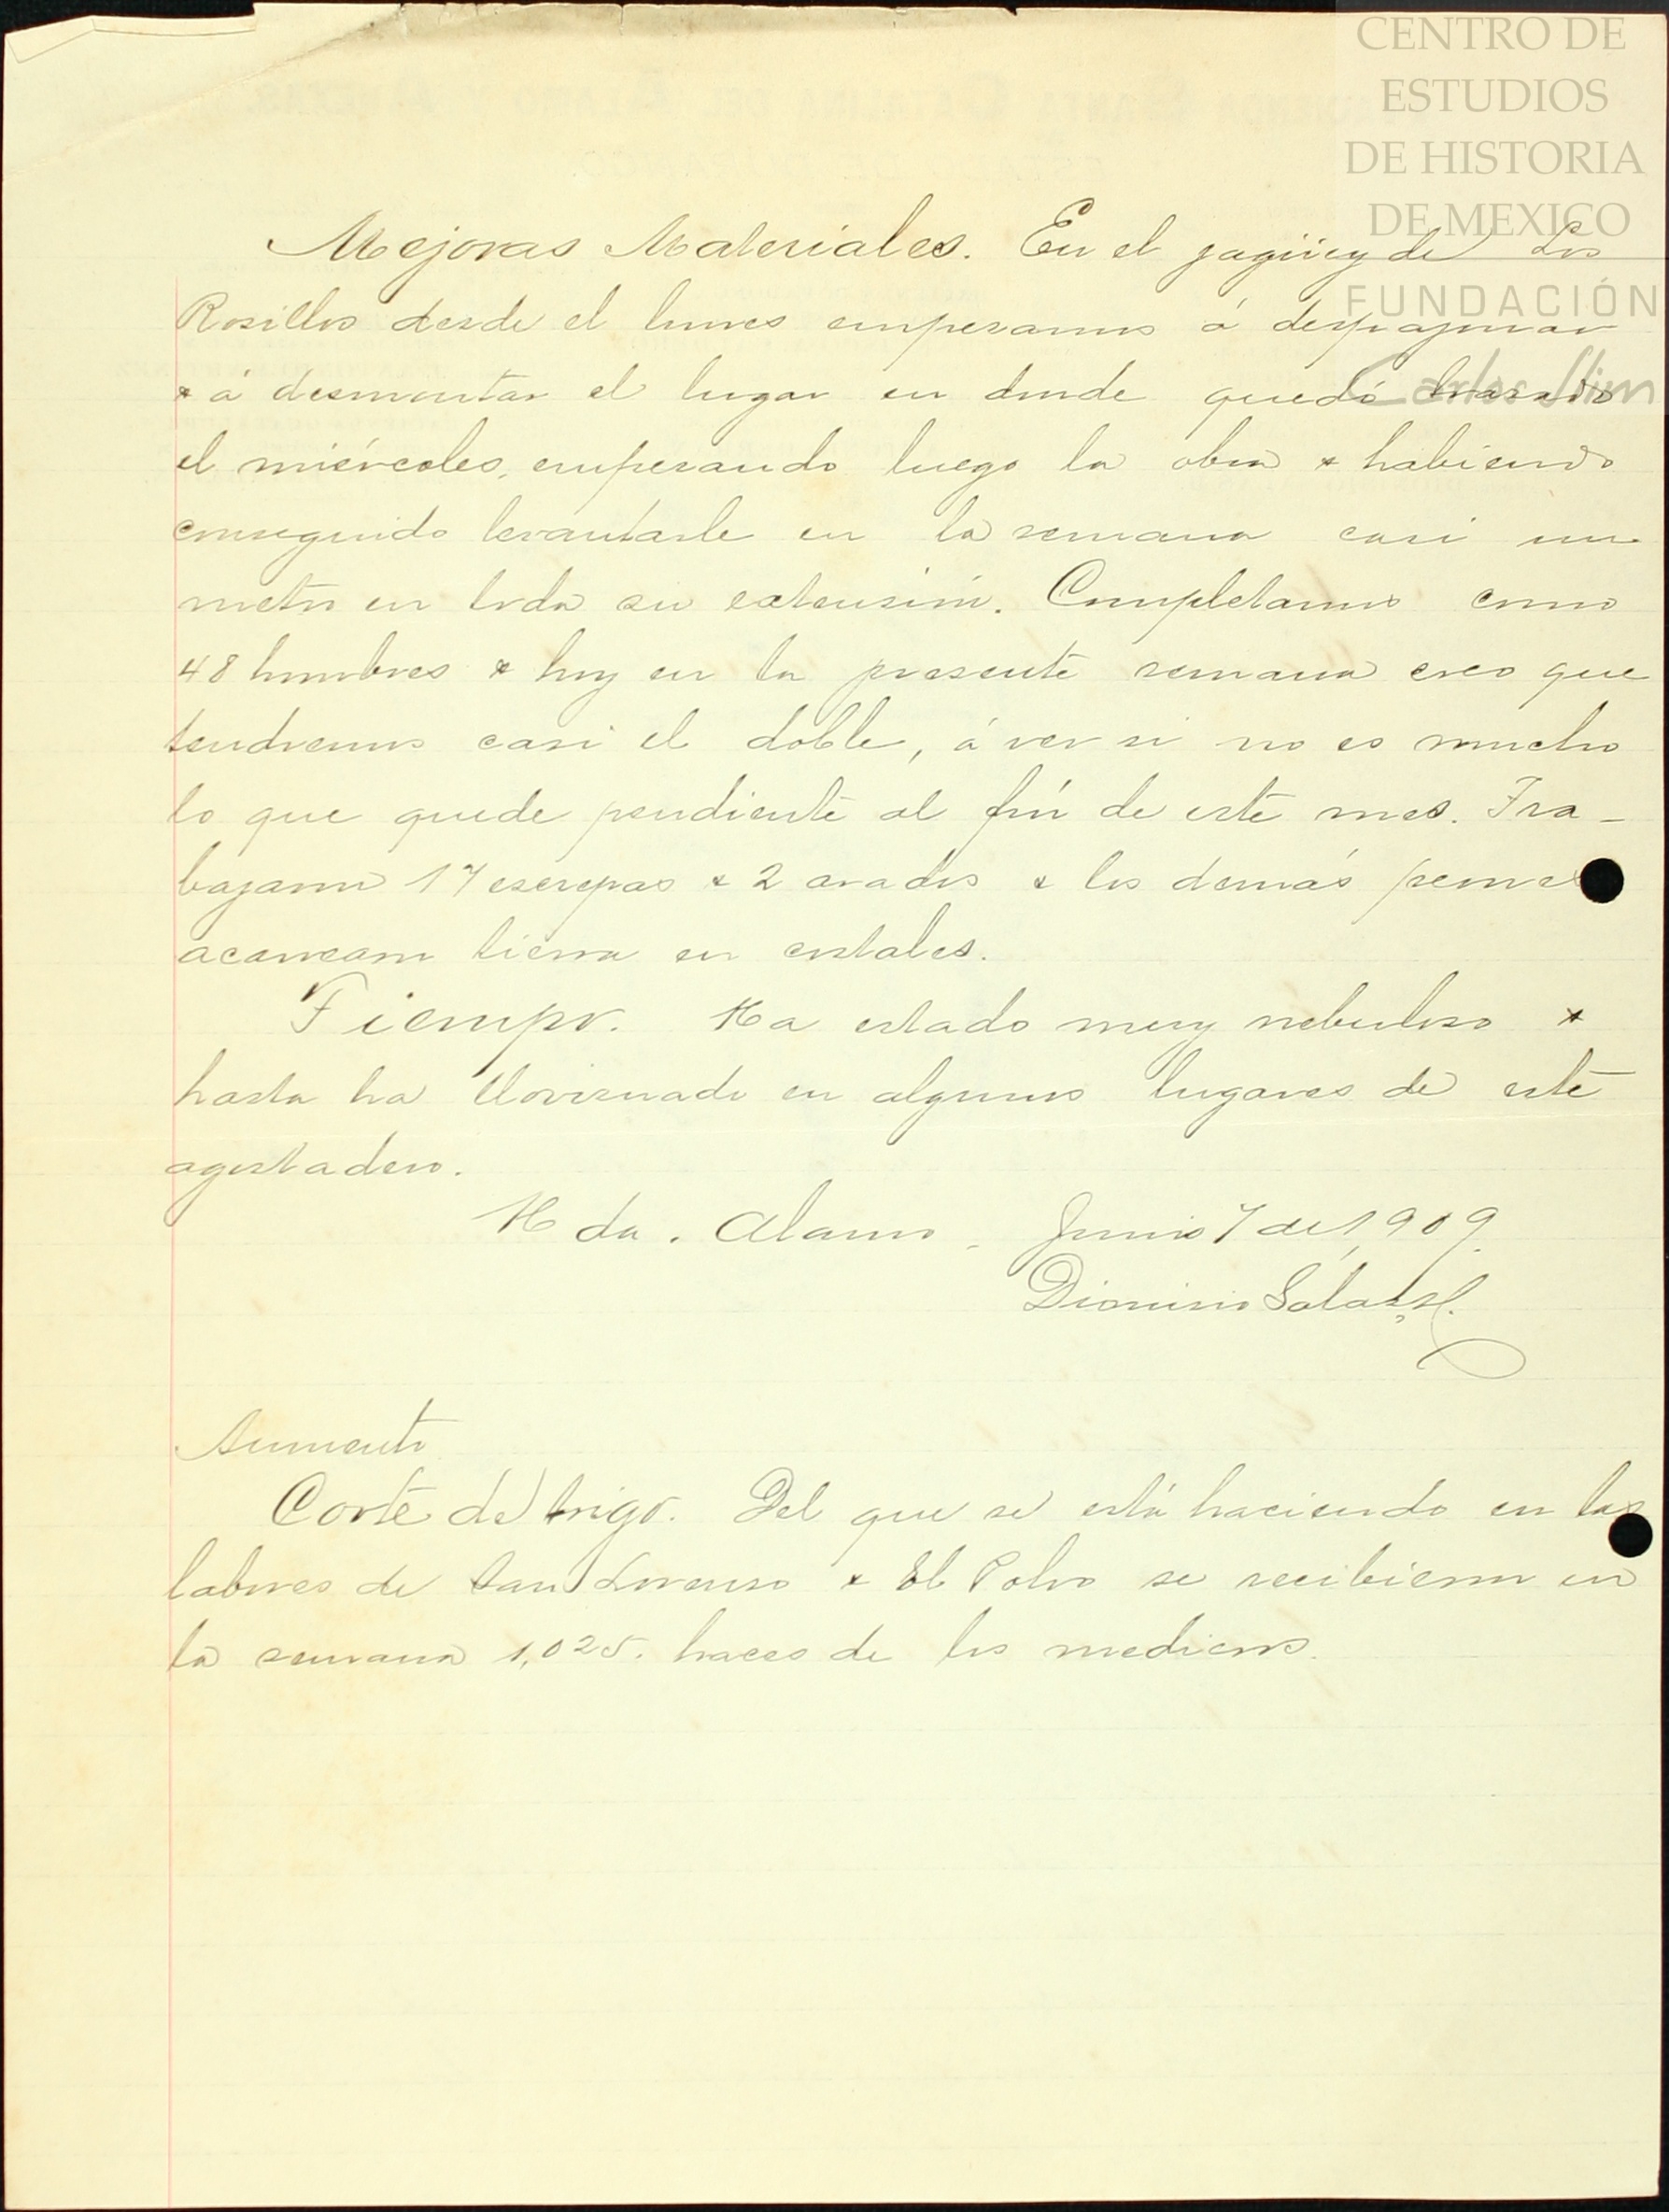 CENTRO DE
ESTUDIOS
DE HISTORIA
DE MEXICO
FUNDACIÓN
Carlos Slim
Mejoras Materiales. En el jagüey de Los
Rosillos desde el lunes empesamos á
& á desmontar el lugar en donde quedó trasado
el miércoles, empesando luego la obra & habiendo
conseguido levantarle en la semana casi un
metro en toda su extensión. Completamos como
48 hombres & hoy en la presente semana creo que
tendremos casi el doble, á ver si no es mucho
lo que quede pendiente al fin de este mes. Tra-
bajaron 17 escrepas & 2 arados & los demás
acarrearon tierra en costales.
Tiempo. Ha estado muy nebuloso &
hasta ha llovisnado en algunos lugares de este
agostadero.
Hda. Alamo. Junio 7 de 1909.
Dionisio
Aumento
Corte de trigo. Del que se está haciendo en las
labores de San Lorenso & El Polvo se recibieron en
la semana 1,025. haces de los medieros.